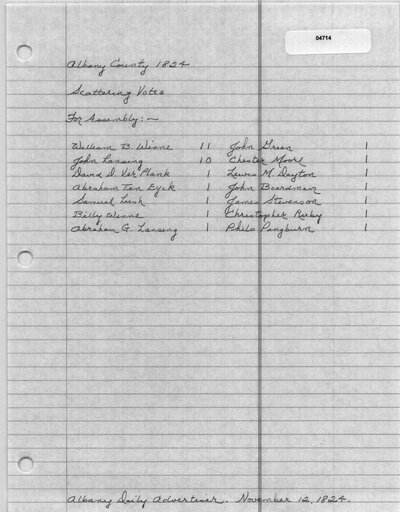 04714
Albany County 1824
Scattering Votes
For Assembly:—
William B. Winne 11 John Green 1
John Lansing 10 Chester Moore 1
David D. Ver Plank 1 Lewis M. Dayton 1
Abraham Ten Eyck 1 John Boardman 1
Samuel Lush 1 James Stevenson 1
Billy Winne 1 Christopher 1
Abraham G. Lansing 1 Philo Pangburn 1
Albany Daily Advertiser. November 12, 1824.